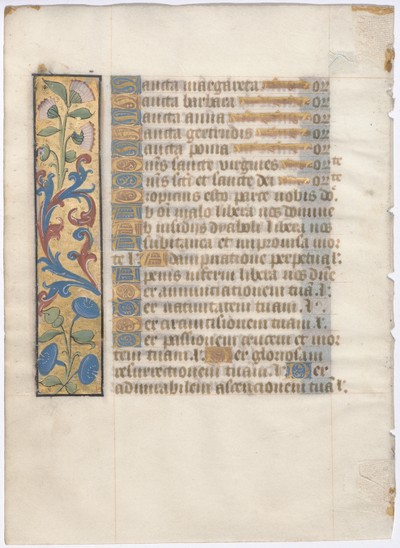 Sancta margareta or
Sancta barbara or
Sancta anna or
Sancta gertrudis or
Sancta
Oms sancte virgines or
Oms sci et sancte dei orte
Propicius esto parce nobis do
Ab oi malo libera nos domine
Ab insidiis dyaboli libera nos
A subitanea et improvisa mor
te l. A dampnatione perpetua l.
A penis inferni libera nos dne
Per annunciationem tua l.
Per nativitatem tuam l.
Per circuncisionem tuam l.
Per passionem crucem et mor
tem tuam l. Per gloriosam
resurrectionem tuam l. Per
admirabilem ascencionem tua l.